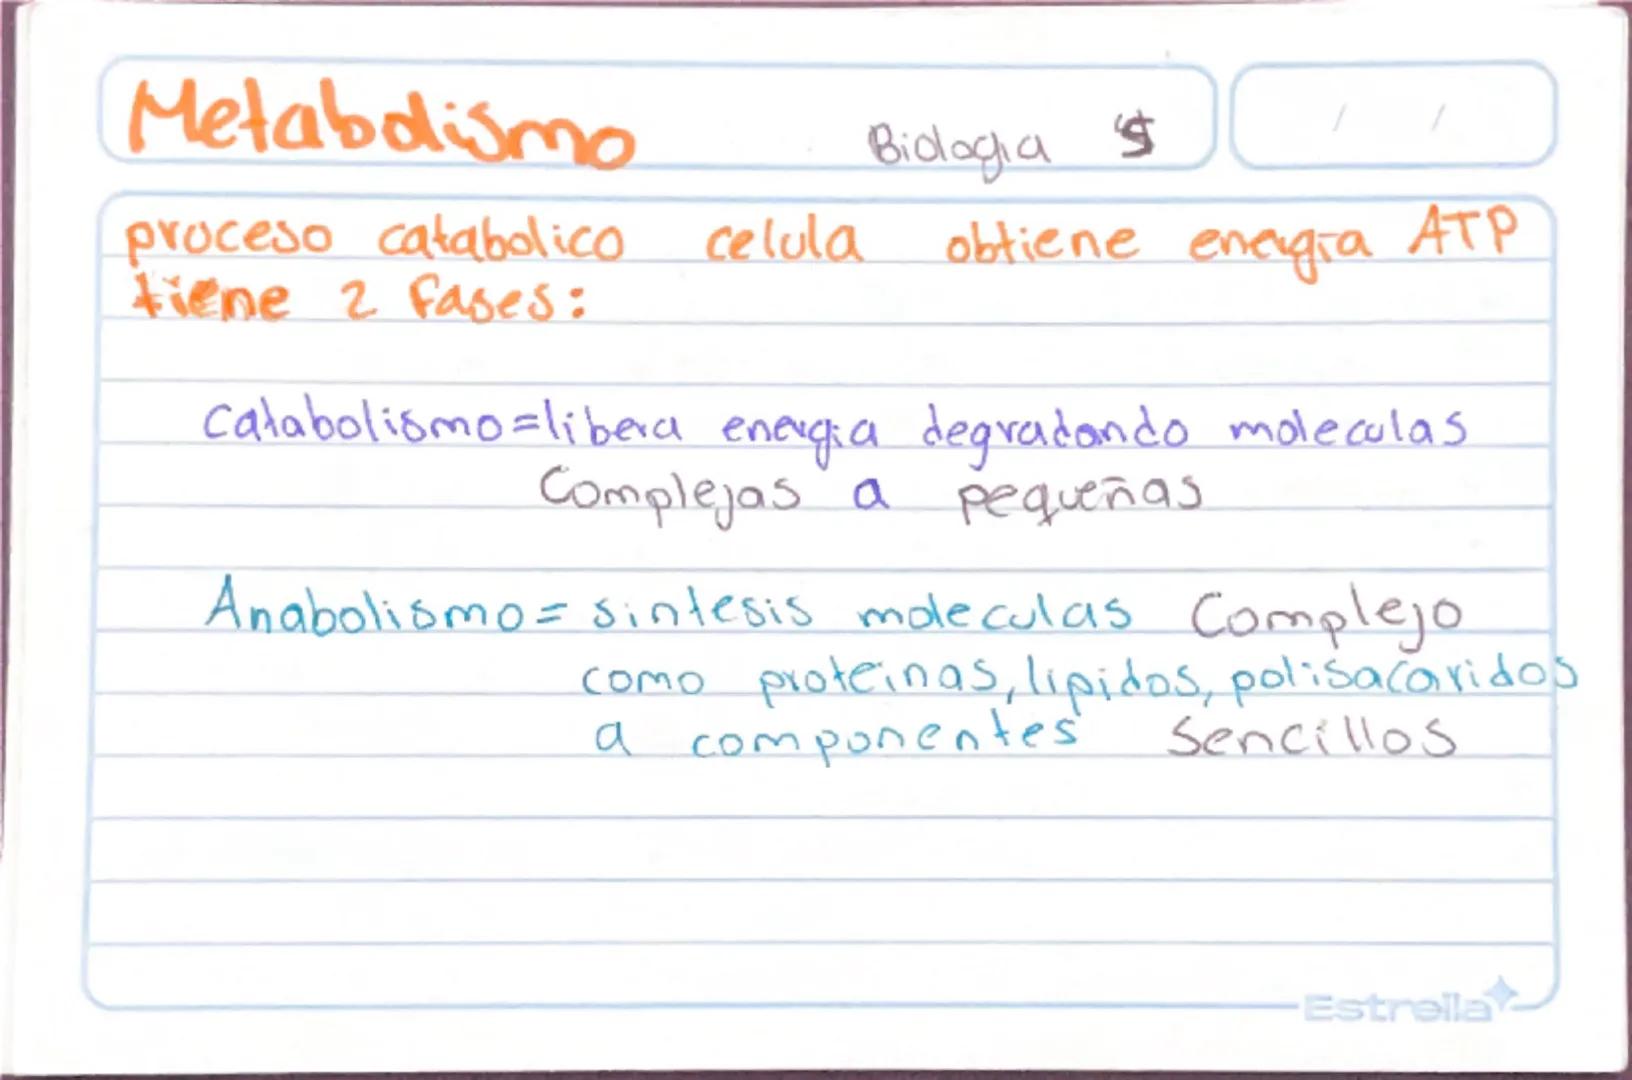 Metabolismo Biologia
proceso catabolico celula obtiene energia ATP
tiene 2 fases:
Catabolismo=libera energia degradando moleculas
Complejas a pequeñas
Anabolismo= sintesis moleculas Complejo
como proteinas, lipidos, polisacaridos
a componentes sencillos
Estrella